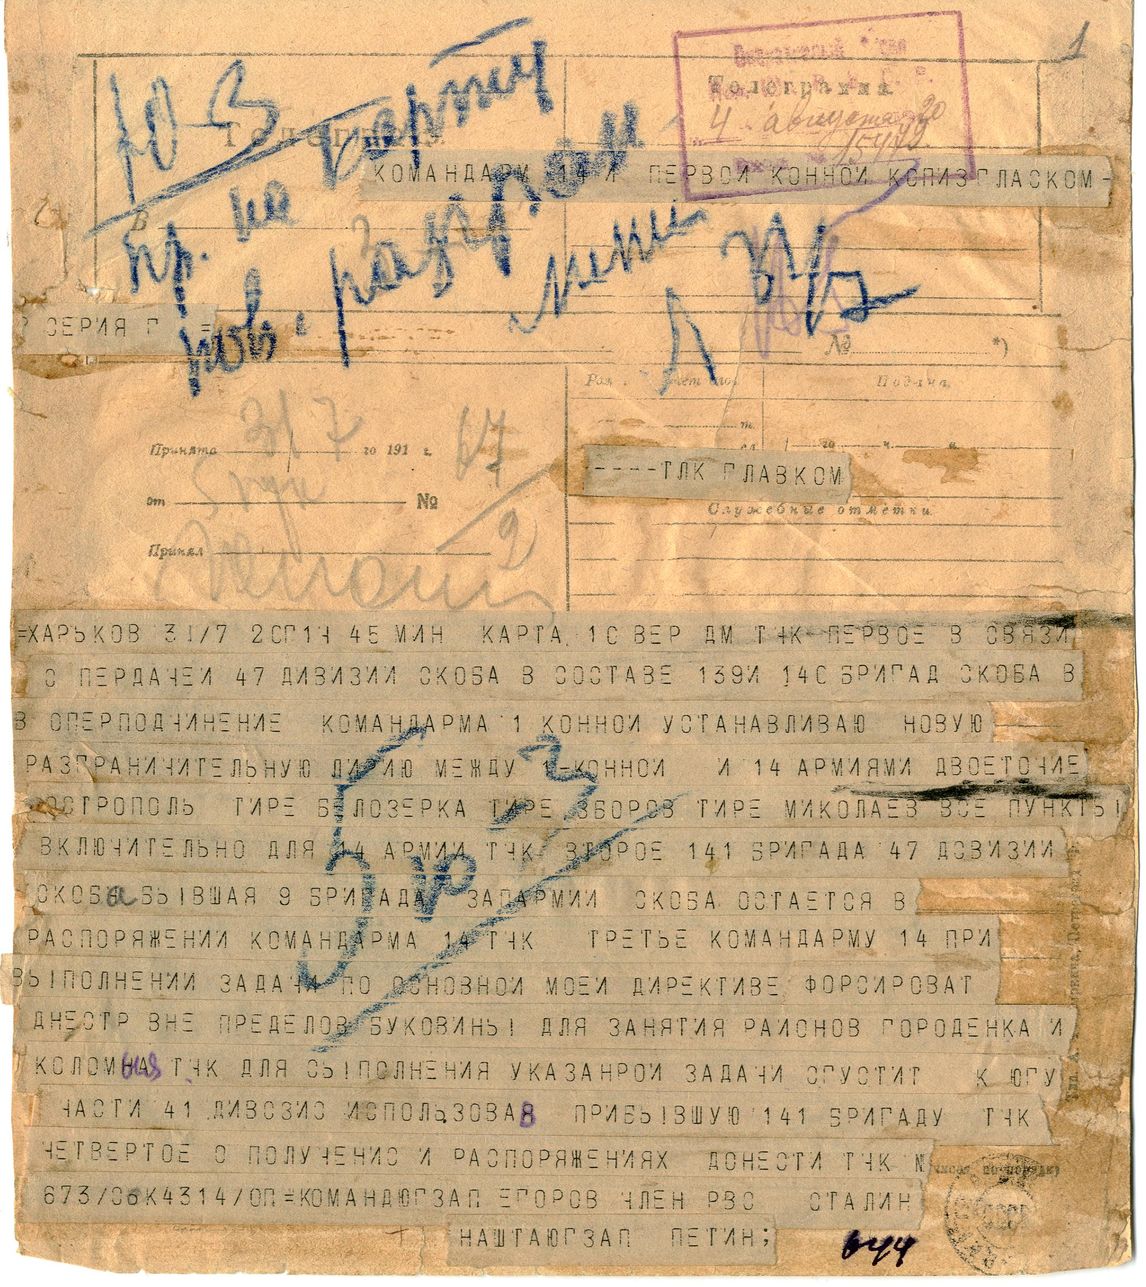 1
Ю-З
пр. на карту
нов. разгран
линии
Телеграмма
4 августа 20
КОМАНДАРМ 14 И ПЕРВОЙ КОННОЙ КОПИЯ ГЛАСКОМ-
В
СЕРИЯ Г =
№ *)
Счет слов
Подача.
Принята 31/7 го 191 г. 67
от № 
Принял
го ч. м.
----ТЛК ГЛАВКОМ
Служебные отметки.
=ХАРЬКОВ 31/7 2СП1Ч 45 МИН КАРТА 1С ВЕР ДМ ТЧК ПЕРВОЕ В СВЯЗИ
С ПЕРДАЧЕЙ 47 ДИВИЗИИ СКОБА В СОСТАВЕ 139И 14С БРИГАД СКОБА В
В ОПЕРПОДЧИНЕНИЕ КОМАНДАРМА 1 КОННОЙ УСТАНАВЛИВАЮ НОВУЮ
РАЗГРАНИЧИТЕЛЬНУЮ ЛИНИЮ МЕЖДУ 1-КОННОЙ И 14 АРМИЯМИ ДВОЕТОЧИЕ
ОСТРОПОЛЬ ТИРЕ БЕЛОЗЕРКА ТИРЕ ЗБОРОВ ТИРЕ МИКОЛАЕВ ВСЕ ПУНКТЫ
ВКЛЮЧИТЕЛЬНО ДЛЯ 14 АРМИИ ТЧК ВТОРОЕ 141 БРИГАДА 47 ДОВИЗИИ
СКОБа БЫВШАЯ 9 БРИГАДА ЗАПАРМИИ СКОБА ОСТАЕТСЯ В
РАСПОРЯЖЕНИИ КОМАНДАРМА 14 ТЧК ТРЕТЬЕ КОМАНДАРМУ 14 ПРИ
ВЫПОЛНЕНИИ ЗАДАЧИ ПО ОСНОВНОЙ МОЕЙ ДИРЕКТИВЕ ФОРСИРОВАТ
ДНЕСТР ВНЕ ПРЕДЕЛОВ БУКОВИНЫ ДЛЯ ЗАНЯТИЯ РАЙОНОВ ГОРОДЕНКА И
КОЛОМЫЯ ТЧК ДЛЯ ОЫПОЛНЕНИЯ УКАЗАНРОЙ ЗАДАЧИ СГУСТИТ К ЮГУ
ЧАСТИ 41 ДИВОЗИО ИСПОЛЬЗОВАВ ПРИБЫВШУЮ 141 БРИГАДУ ТЧК
ЧЕТВЕРТОЕ О ПОЛУЧЕНИО И РАСПОРЯЖЕНИЯХ ДОНЕСТИ ТЧК N
673/С6К4314/ОП=КОМАНДЮГЗАП ЕГОРОВ ЧЛЕН РВС СТАЛИН
НАШТАЮГЗАП ПЕТИН;
644